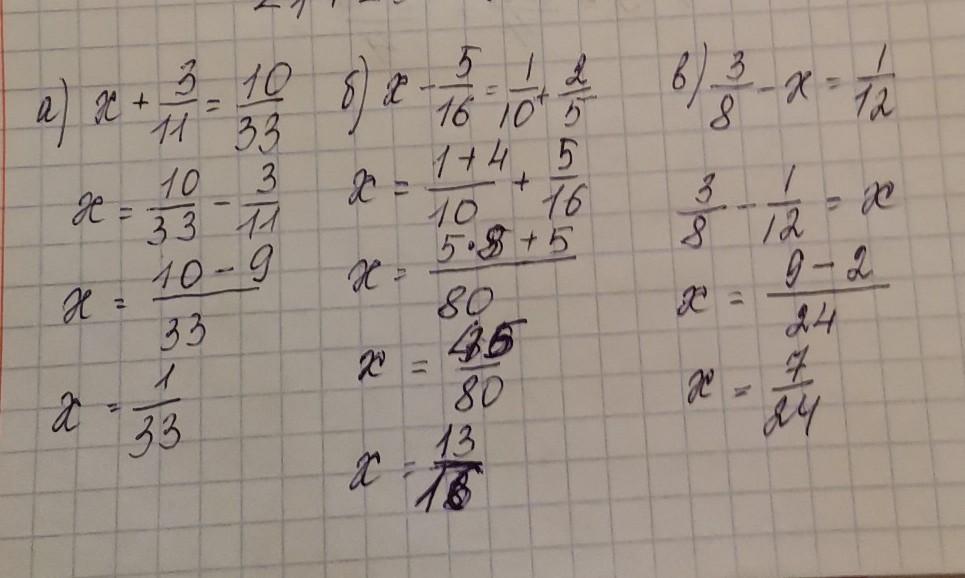 а) x + 3/11 = 10/33
x = 10/33 - 3/11
x = (10 - 9)/33
x = 1/33
б) x - 5/16 = 1/10 + 2/5
x = (1 + 4)/10 + 5/16
x = (5·8 + 5)/80
x = 13/16
в) 3/8 - x = 1/12
3/8 - 1/12 = x
x = (9 - 2)/24
x = 7/24